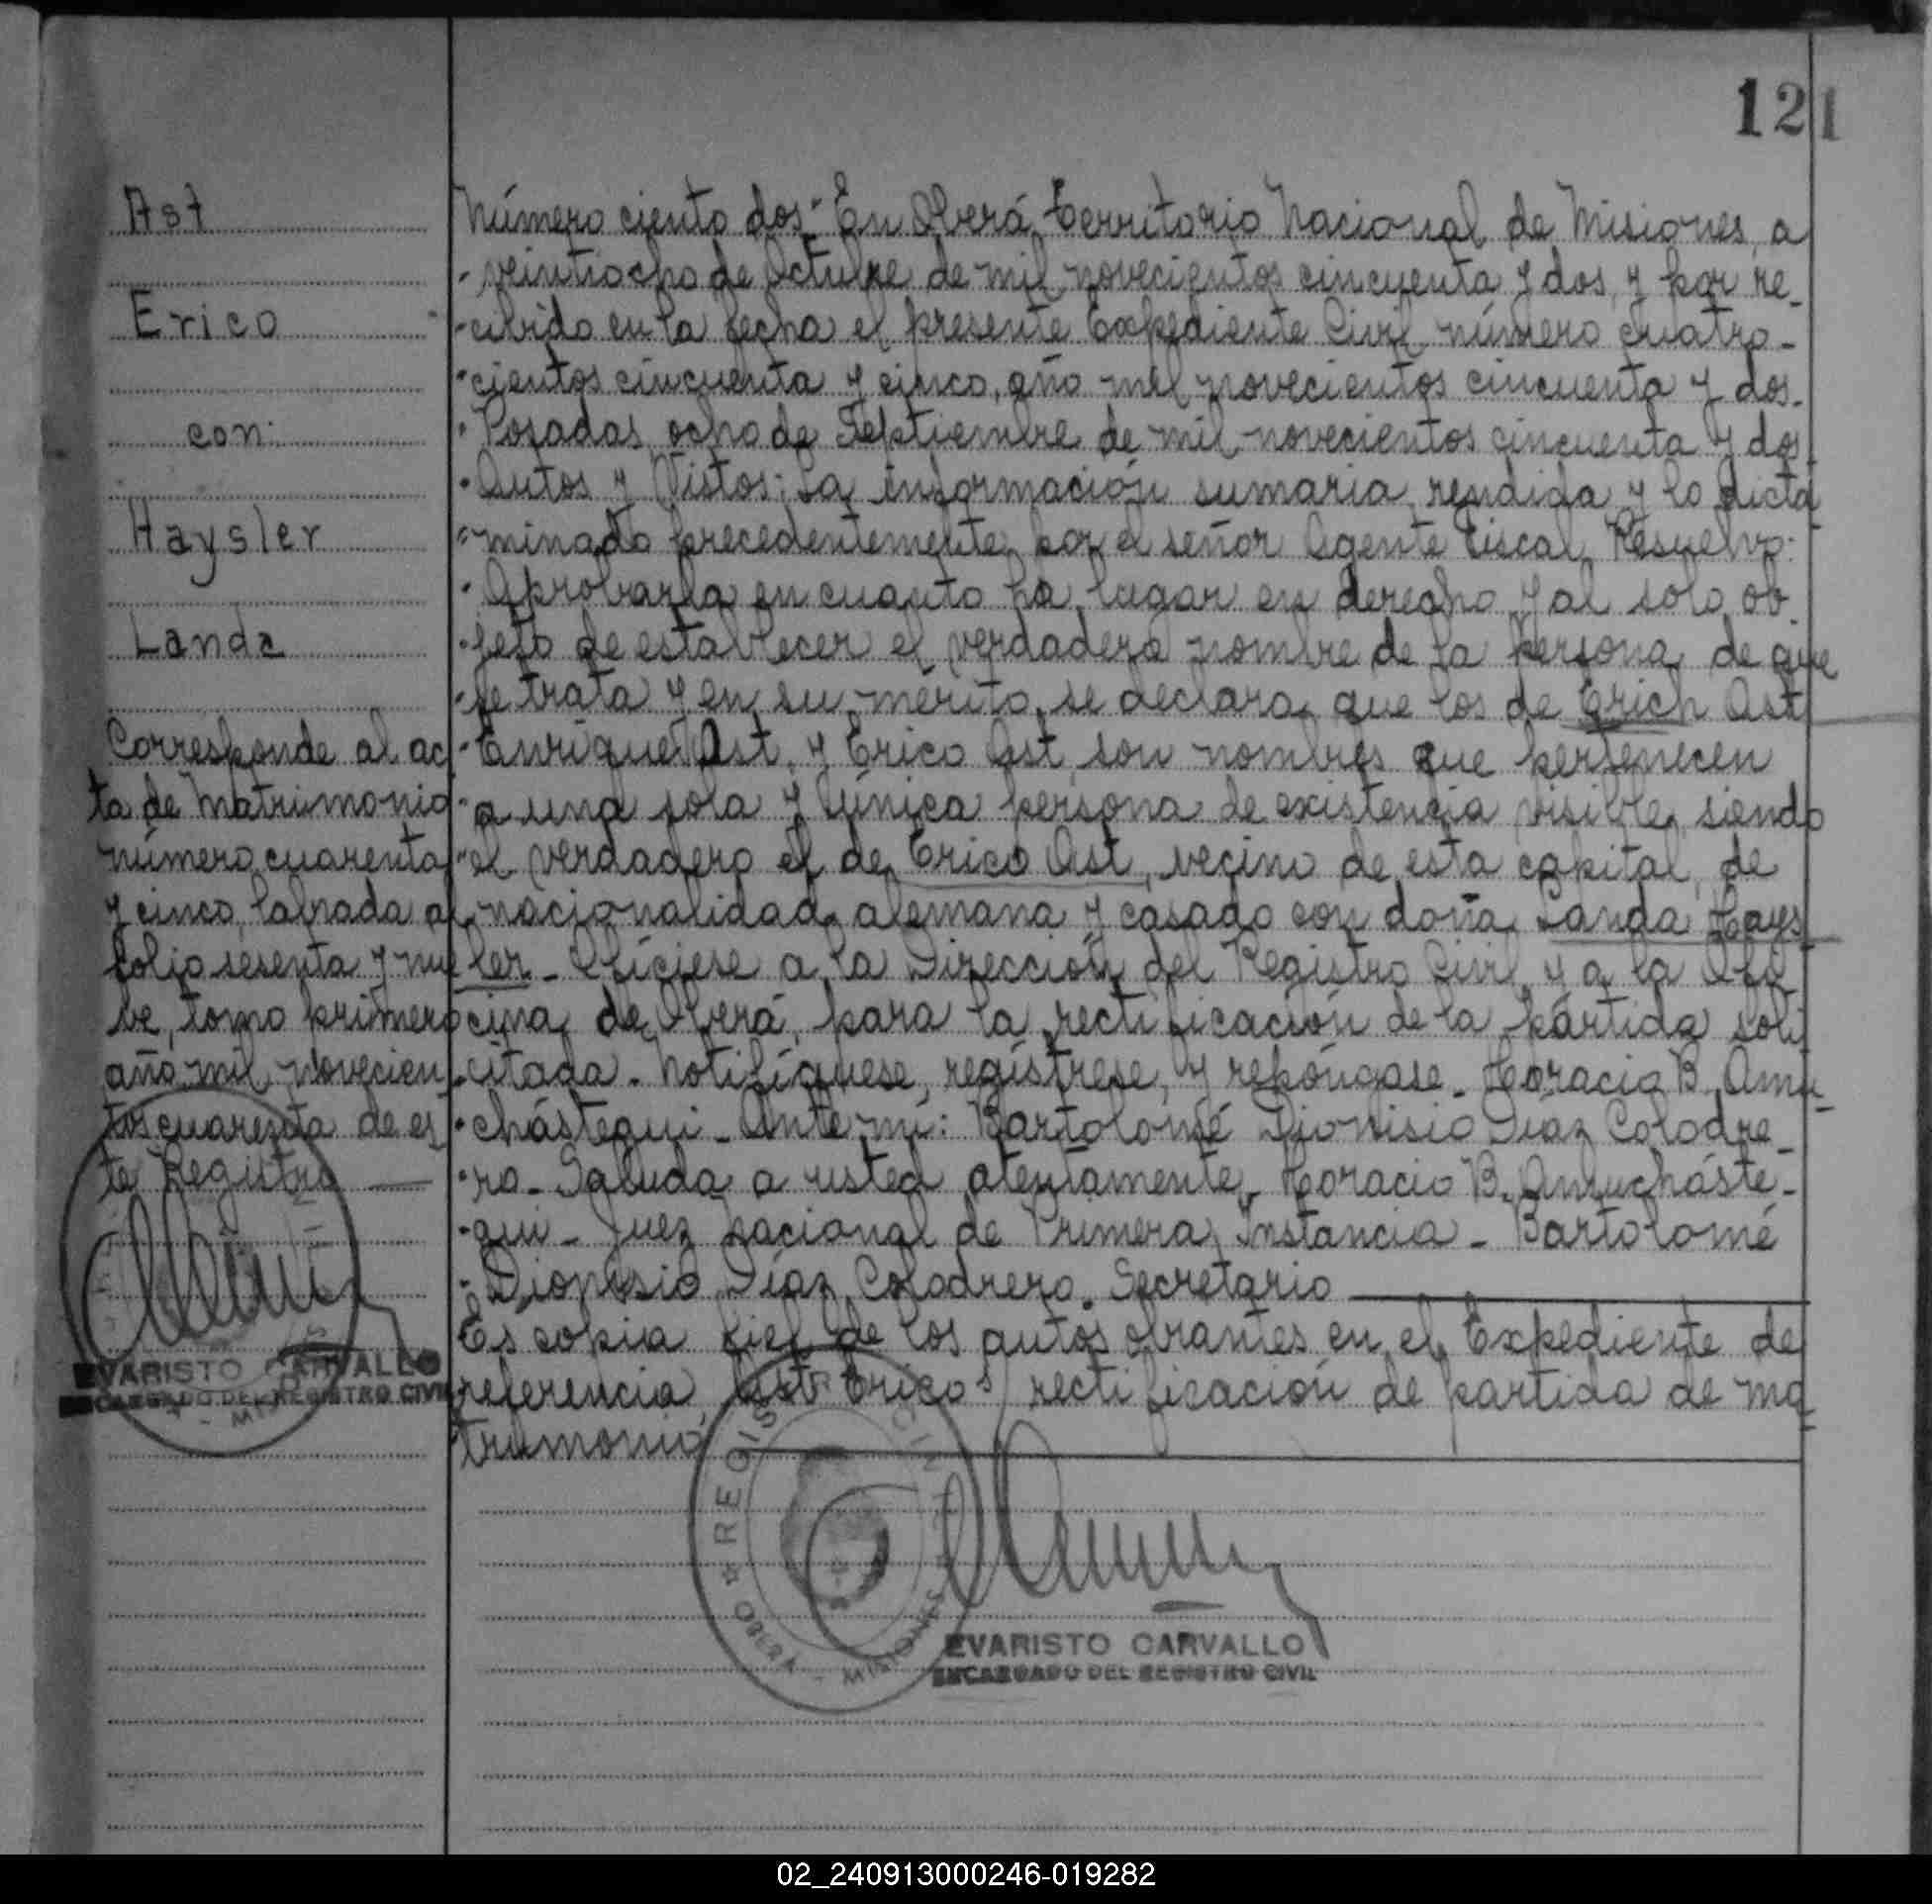 121
Ast
Erico
con:
Haysler
Landa
Corresponde al ac
ta de Matrimonio
número cuarenta
y cinco, labrada al
folio sesenta y nue
ve, tomo primero
año mil novecien
tos cuarenta de es
te Registro
EVARISTO CARVALLO
ENCARGADO DEL REGISTRO CIVIL
Número ciento dos" En Oberá, Territorio Nacional de Misiones, a
veintiocho de Octubre de mil novecientos cincuenta y dos, y por re-
cibido en la fecha el presente Expediente Civil número cuatro-
cientos cincuenta y cinco, año mil novecientos cincuenta y dos.
Posadas, ocho de Septiembre de mil novecientos cincuenta y dos
Autos y Vistos: La información sumaria rendida y lo dicta
minado precedentemente por el señor Agente Fiscal, Resuelvo:
Aprobarla en cuanto ha lugar en derecho y al solo ob
jeto de establecer el verdadero nombre de la persona de que
se trata y en su mérito, se declara que los de Erich Ast
Enrique Ast, y Erico Ast, son nombres que pertenecen
a una sola y única persona de existencia visible, siendo
el verdadero el de Erico Ast, vecino de esta capital, de
nacionalidad alemana y casado con doña Landa Hays
ler_ Ofíciese a la Dirección del Registro Civil, y a la Ofi
cina de Oberá, para la rectificación de la partida soli
citada. Notifíquese, regístrese, y repóngase_ Horacio B. Amu-
chástegui_ Ante mí: Bartolomé Dionisio Díaz Colodre_
ro_ Saluda a usted atentamente_ Horacio B. Amucháste-
gui_ Juez Nacional de Primera Instancia_ Bartolomé
Dionisio Díaz Colodrero. Secretario
Es copia fiel de los autos obrantes en el Expediente de
referencia, "Ast Erico" rectificación de partida de ma
trimonio
REGISTRO CIVIL
OBERA - MISIONES
EVARISTO CARVALLO
ENCARGADO DEL REGISTRO CIVIL
02_240913000246-019282